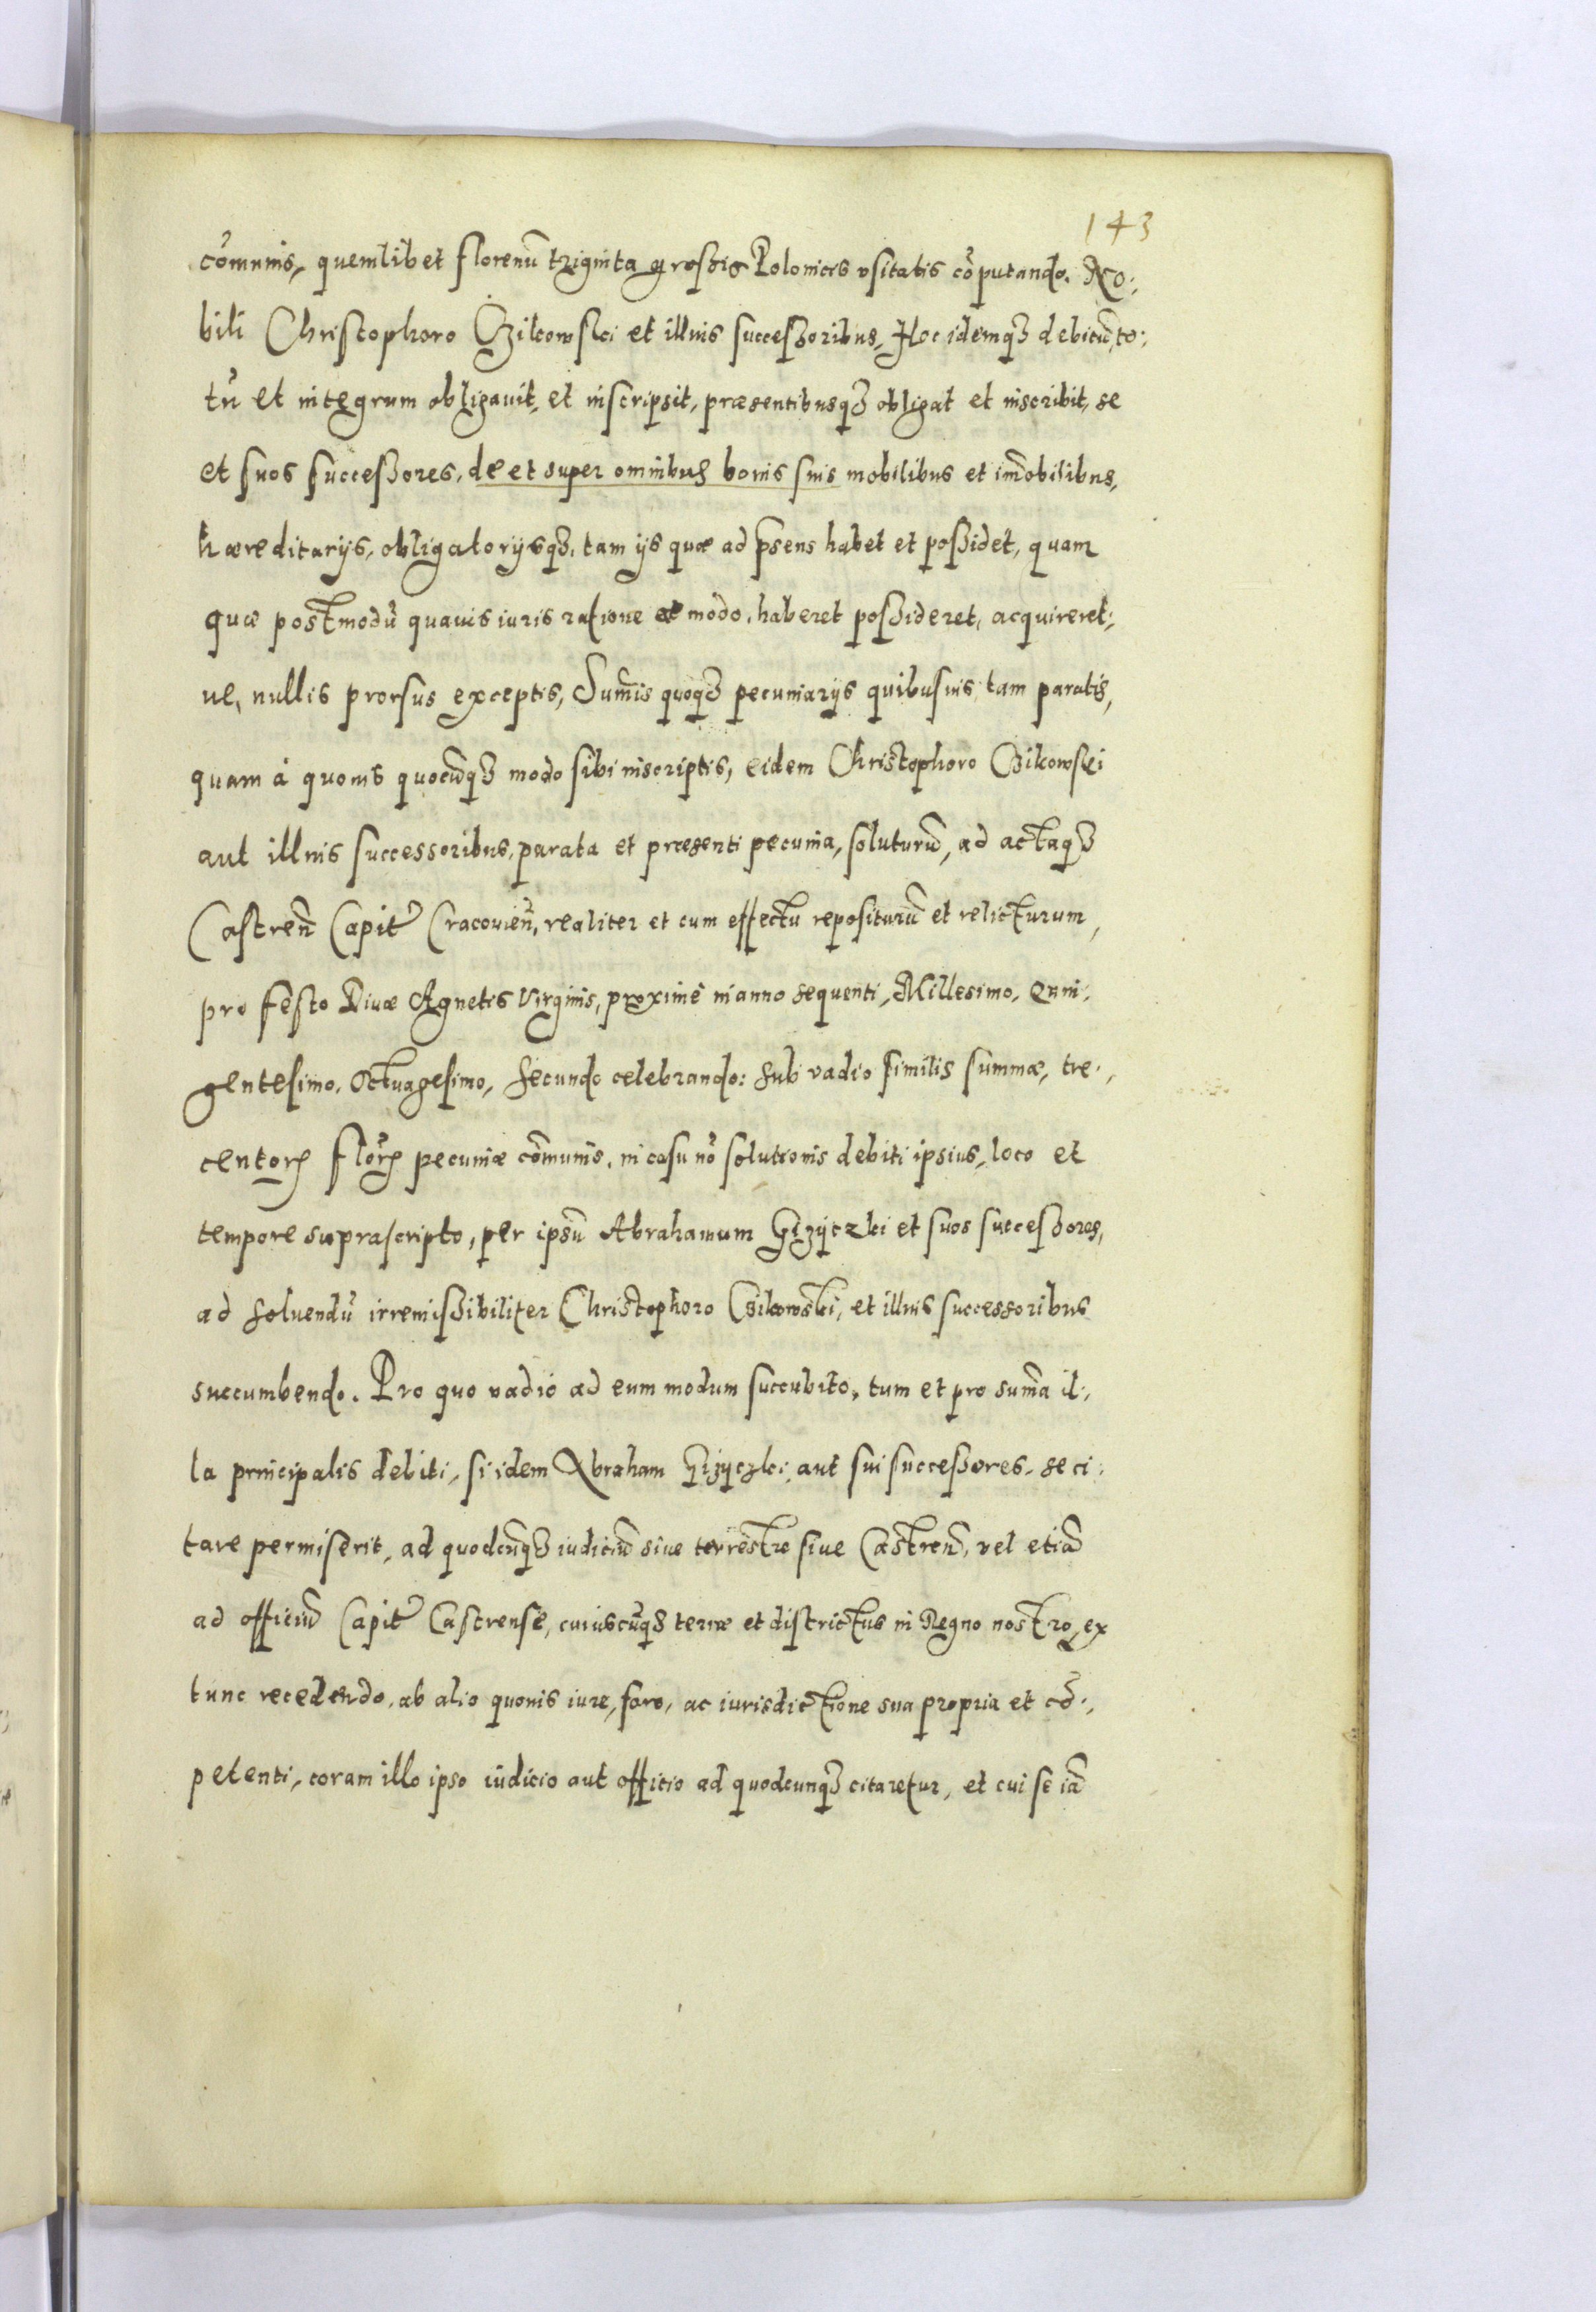 143
cõmunis, quemlibet florenũ triginta grossis Polonicis vsitatis cõputando. No:
bili Christophoro Czikowski et illius successoribus, Hoc idemq3 debitũ, to:
tũ et integrum obligauit, et inscripsit, præsentibusq3 obligat et inscribit, se
et suos successores, de et super omnibus bonis suis mobilibus et im̃obilibus,
hæreditarijs, obligatorijsq3, tam ijs quæ ad p̃sens habet et possidet, quam
quæ postmodũ quauis iuris ratione et modo, haberet possideret, acquireret:
ue, nullis prorsus exceptis, Sum̃is quoq3 pecuniarijs quibusuis tam paratis,
quam à quouis quocũq3 modo sibi inscriptis, eidem Christophoro Czikowski
aut illius successoribus, parata et præsenti pecunia, soluturũ, ad actaq3
Castren̄ Capit̃ Cracouien̄, realiter et cum effectu repositurũ et relicturum,
pro festo Diuæ Agnetis Virginis, proximè in anno sequenti, Millesimo, Quin:
gentesimo, Octuagesimo, secundo celebrando: sub vadio similis summæ, tre:
centorꝝ flõrꝝ pecuniæ cõmunis, in casu nõ solutionis debiti ipsius, loco et
tempore suprascripto, per ipsũ Abrahamum Gizyczki et suos successores,
ad soluendũ irremissibiliter Christophoro Czikowski, et illius successoribus
succumbendo. Pro quo vadio ad eum modum succubito, tum et pro sum̃a il:
la principalis debiti, si idem Abraham Gizyczki aut sui successores, se ci:
tare permiserit, ad quodcũq3 iudiciũ siue terrestre siue Castren̄, vel etiã
ad officiũ Capit̃ Castrense, cuiuscũq3 terræ et districtus in Regno nostro, ex
tunc recedendo, ab alio quouis iure, foro, ac iurisdictione sua propria et cõ:
petenti, coram illo ipso iudicio aut officio ad quodcunq3 citaretur, et cui se iã